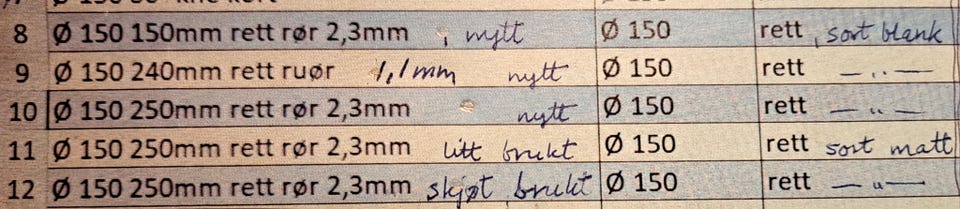 8 Ø 150 150mm rett rør 2,3mm , nytt Ø 150 rett , sort blank
9 Ø 150 240mm rett ruør 1,1mm nytt Ø 150 rett — „ —
10 Ø 150 250mm rett rør 2,3mm nytt Ø 150 rett — „ —
11 Ø 150 250mm rett rør 2,3mm litt brukt Ø 150 rett sort matt
12 Ø 150 250mm rett rør 2,3mm skjøt, brukt Ø 150 rett — „ —